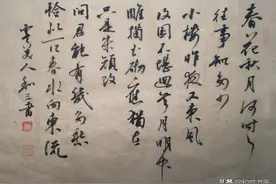 春花秋月何时了
往事知多少
小楼昨夜又东风
故国不堪回首月明中
雕栏玉砌应犹在
只是朱颜改
问君能有几多愁
恰似一江春水向东流
虞美人